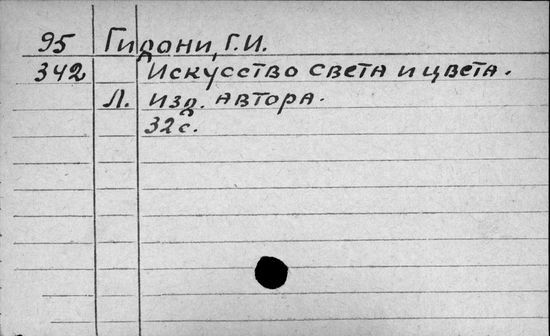 95 Гидони, Г.И.
342 Искусство света и цвета.
Л. Изд. автора.
32 с.